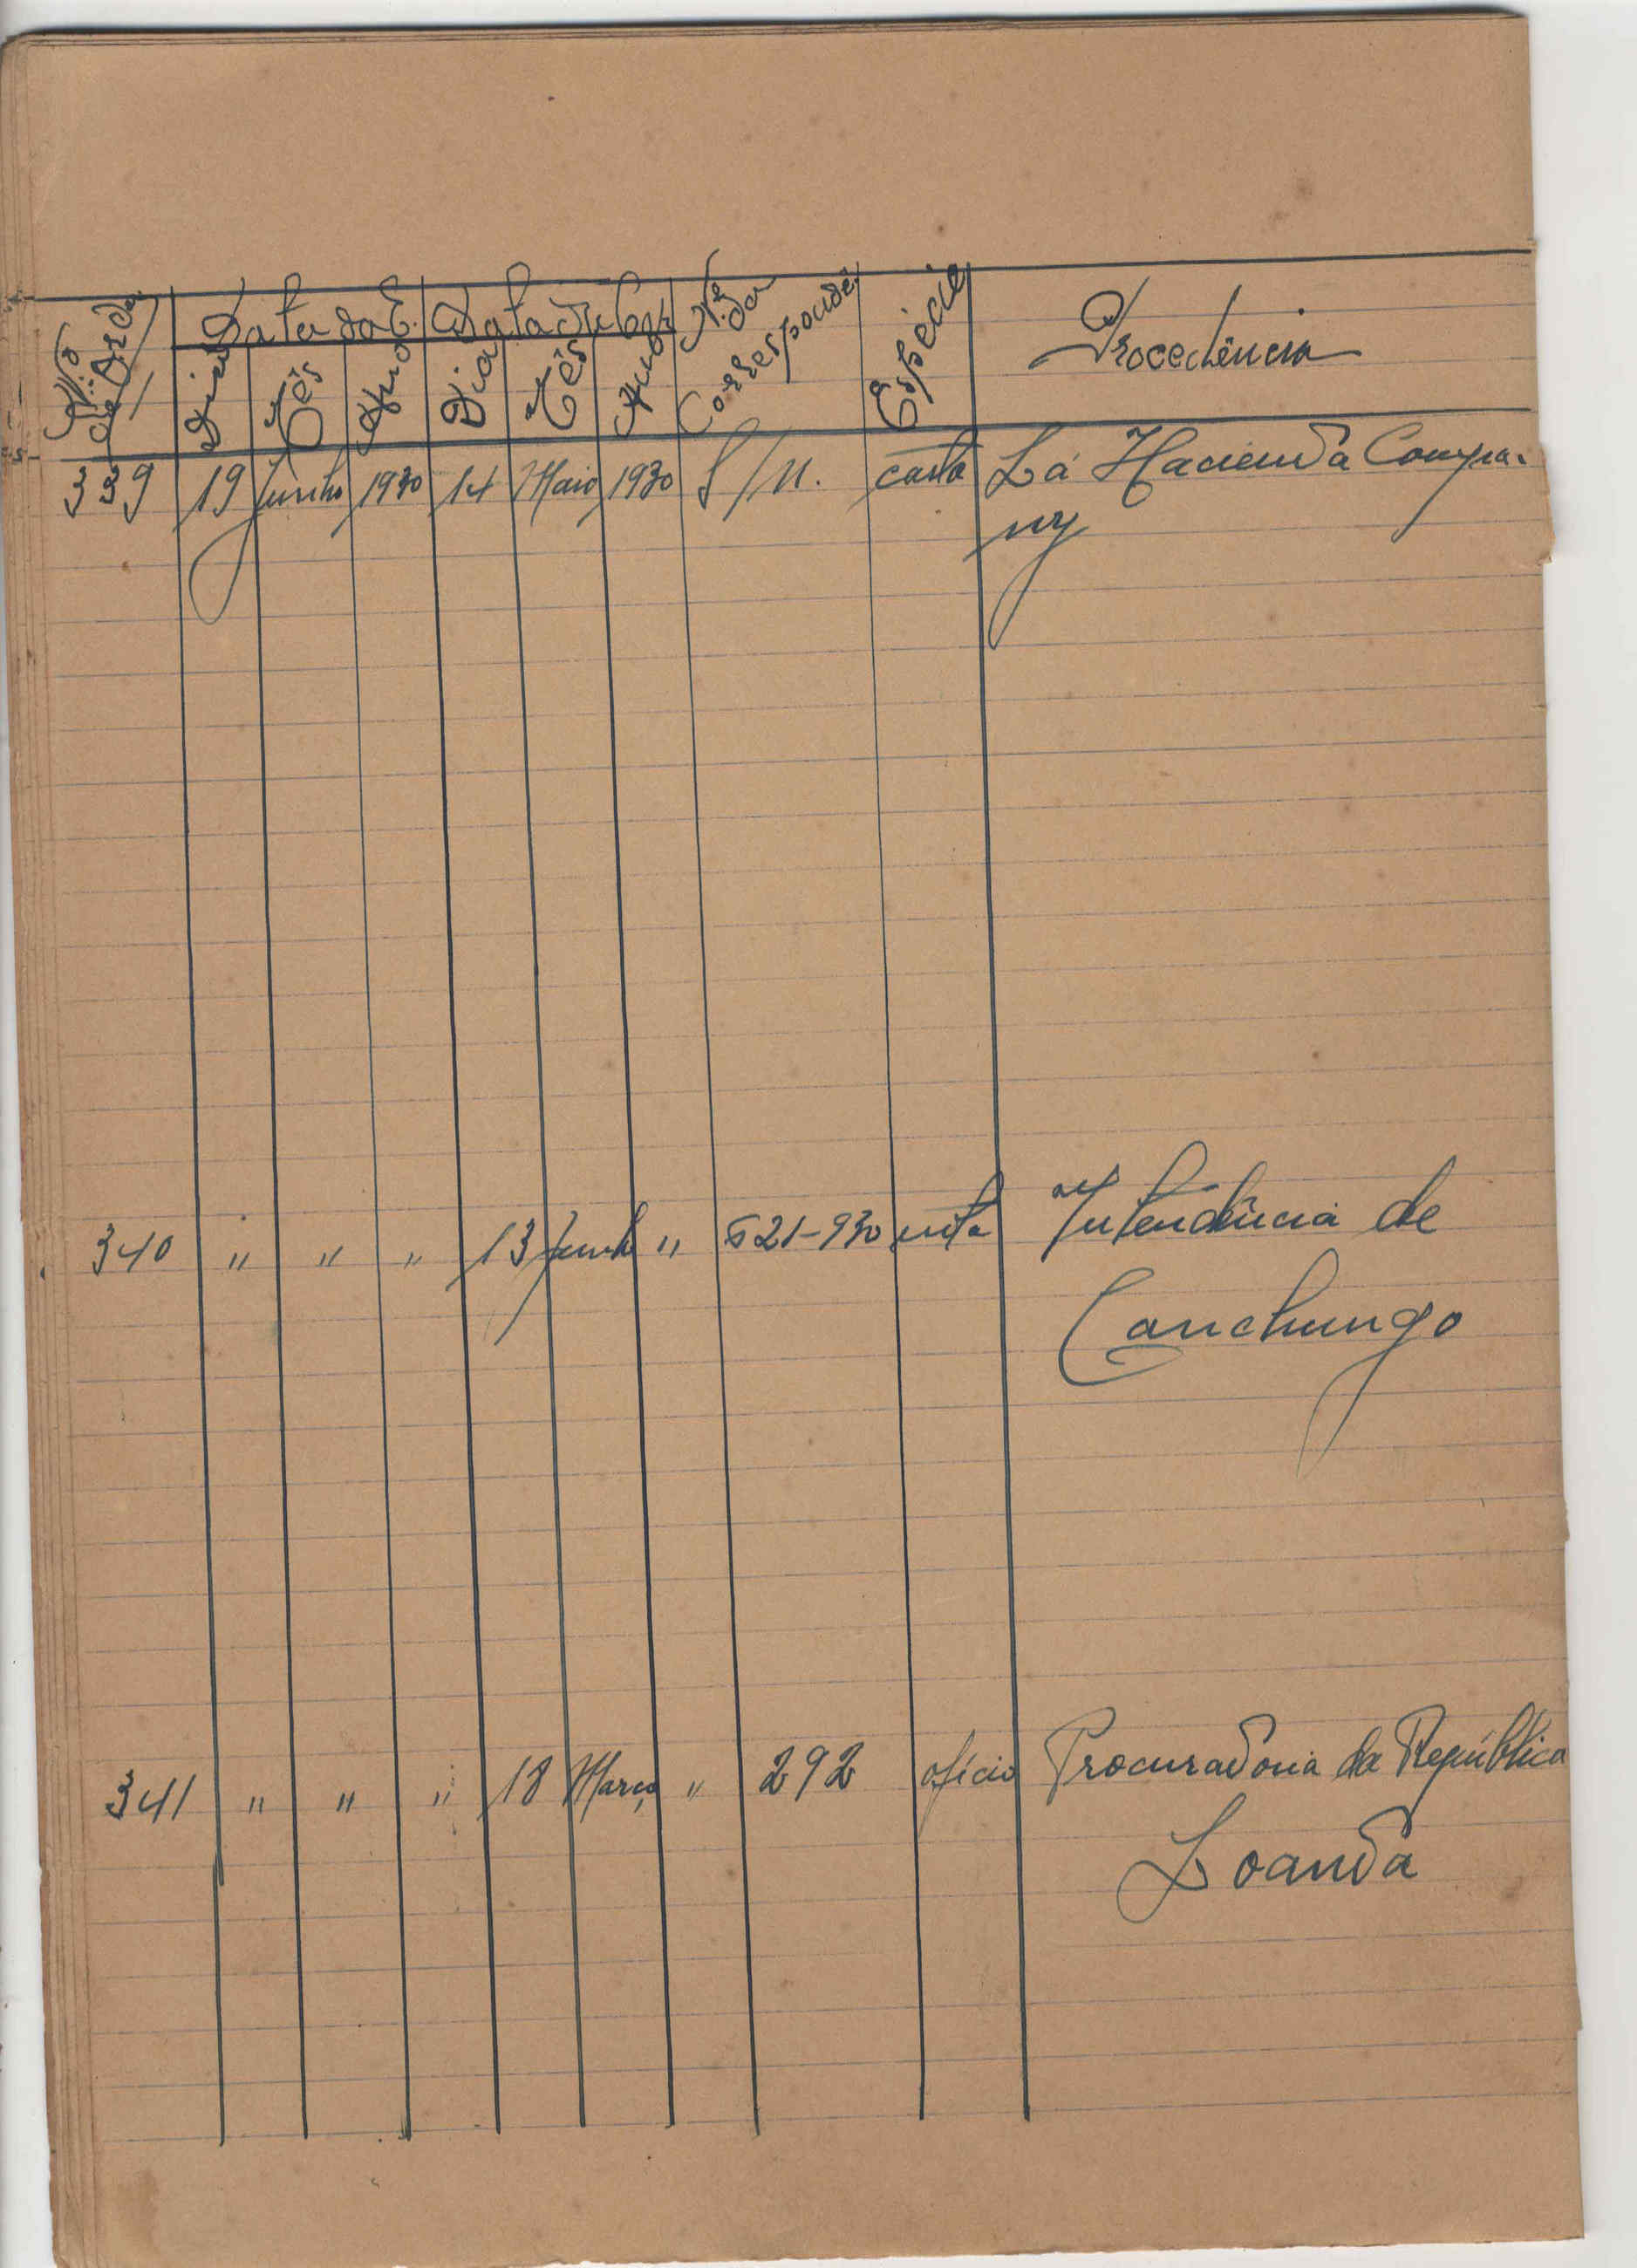 Nº de Ordem Data da E. Data da Cor. Nº da Correspondê. Espécie Procedência
Dia Mês Ano Dia Mês Ano
339 19 Junho 1930 14 Maio 1930 S/N. carta La Hacienda Compa-
ny
340 " " " 13 Junho " 521-930 nota Intendência de
Canchungo
341 " " " 18 Março " 292 ofício Procuradoria da República
Loanda